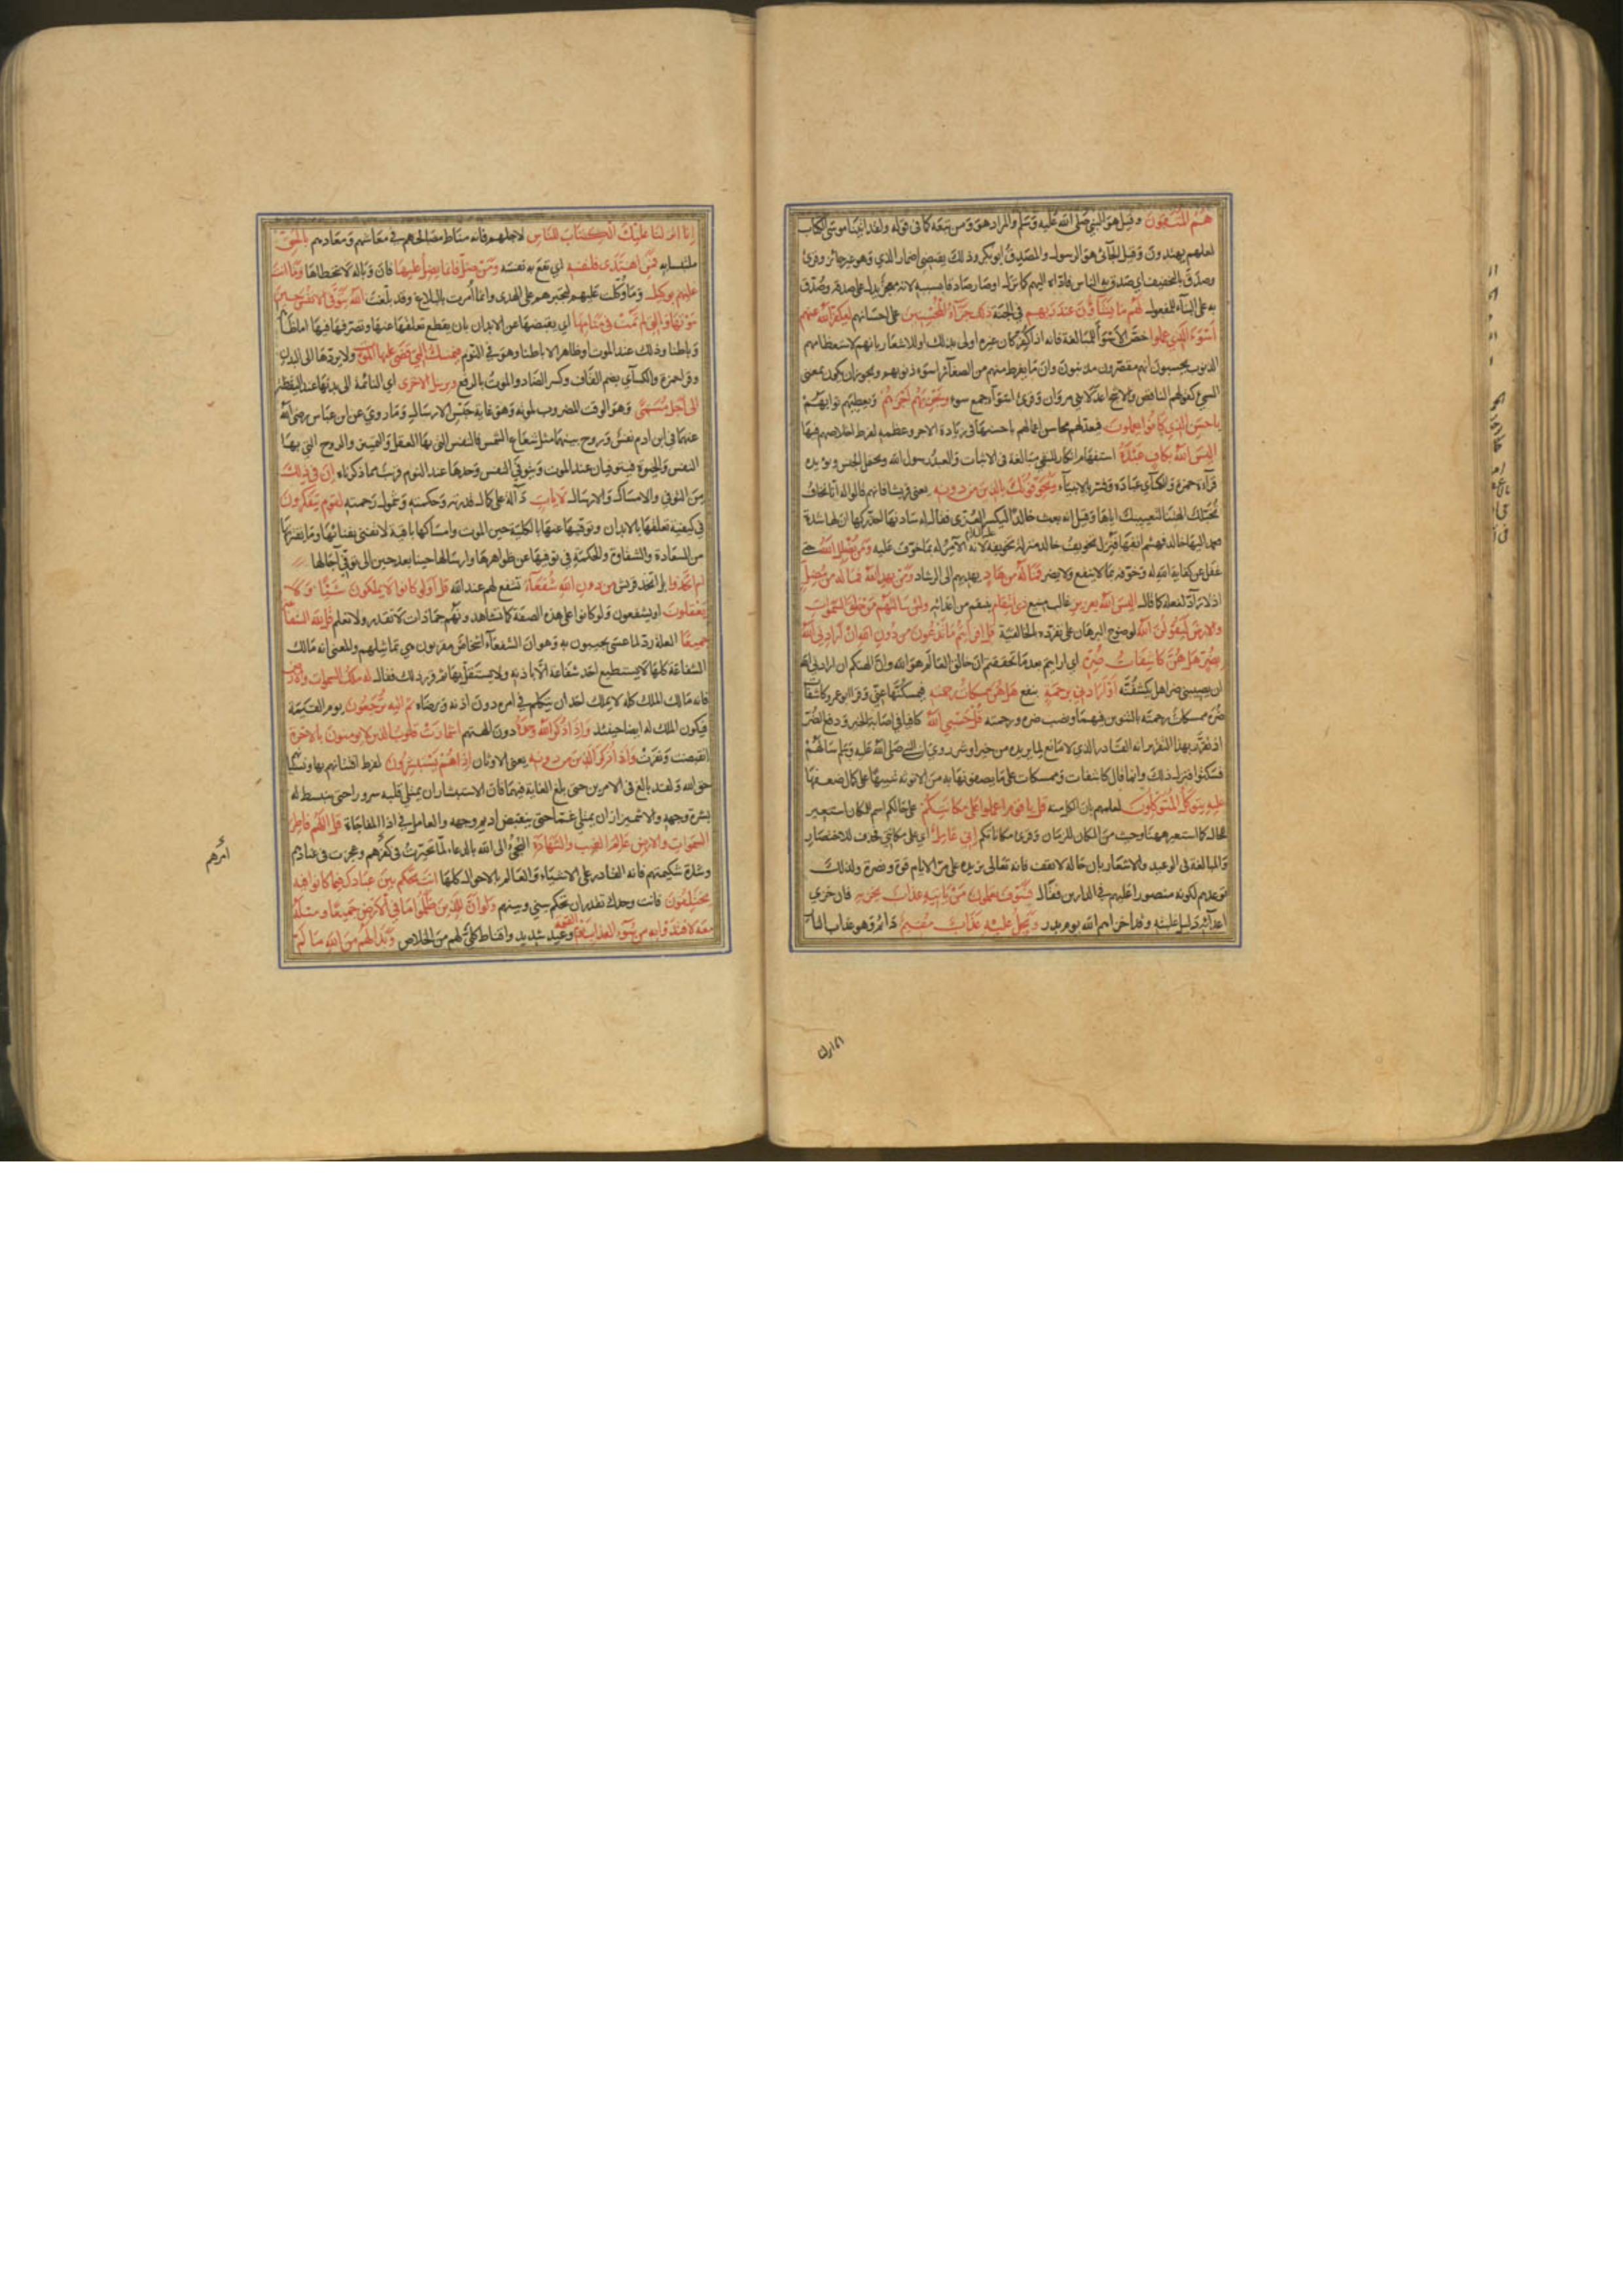 هُمُ المُتَّقُونَ وقيل هو النبي صلى الله عليه وسلم والمراد هو ومن تبعه كما في قوله ولقد اتينا موسى الكتاب
لعلهم يهتدون وقيل الجائي هو الرسول والمصدق ابو بكر وذلك يقتضي اضمار الذي وهو غير جائز وقرئ
وصدق بالتخفيف اي صدق به الناس فاداه اليهم كما نزل او صار صادقا بسببه لانه معجز يدل على صدقه وصُدّق
به على البناء للمفعول لهم ما يشاؤن عند ربهم في الجنة ذلك جزاء المحسنين على احسانهم ليكفر الله عنهم
اسوء الذي عملوا خص الاسوأ للمبالغة فانه اذا كفر كان غيره اولى بذلك او للاشعار بانهم لاستعظامهم
الذنوب يحسبون انهم مقصرون مذنبون وان ما يفرط منهم من الصغائر اسوء ذنوبهم ويجوز ان يكون بمعنى
السيئ كقولهم الناقص والاشج اعدلا بني مروان وقرئ اسوآء جمع سوء ويجزيهم اجرهم ويعطيهم ثوابهم
باحسن الذي كانوا يعملون فيعد لهم محاسن اعمالهم باحسنها في زيادة الاجر وعظمه لفرط اخلاصهم فيها
اليس الله بكاف عبده استفهام انكار للنفي مبالغة في الاثبات والعبد رسول الله ويحتمل الجنس ويؤيده
قرآءة حمزة والكسآئي عباده وفسر بالانبيآء ويخوفونك بالذين من دونه يعني قريشا فانهم قالوا له انا نخاف
تخبلك الهتنا لتعييبك اياها وقيل انه بعث خالدا ليكسر العزى فقال له سادنها احذركها ان لها شدة
فعمد اليها خالد فهشم انفها فنزل تخويف خالد منزلة تخويفه لانه الآمر له بما خوف عليه ومن يضلل الله حتى
غفل عن كفاية الله له وخوفه بما لا ينفع ولا يضر فما له من هاد يهديهم الى الرشاد ومن يهد الله فما له من مضل
اذ لا رآدّ لفعله كما قال اليس الله بعزيز غالب منيع ذي انتقام ينتقم من اعدائه ولئن سالتهم من خلق السموات
والارض ليقولن الله لوضوح البرهان على تفرده بالخالقية قل افرايتم ما تدعون من دون الله ان ارادني الله
بضر هل هن كاشفات ضره اي ارايتم بعد ما تحققتم ان خالق العالم هو الله وان الهتكم ان اراد بي الله
ان يصيبني ضر هل يكشفنه او ارادني برحمة بنفع هل هن ممسكات رحمته فيمسكنها عني وقرا ابو عمرو كاشفات
ضره ممسكات رحمته بالتنوين فيهما ونصب ضره ورحمته قل حسبي الله كافيا في اصابة الخير ودفع الضر
اذ تقرر بهذا التقرير انه القادر الذي لا مانع لما يريده من خير او شر روي ان النبي صلى الله عليه وسلم سالهم
فسكتوا فنزل ذلك وانما قال كاشفات وممسكات على ما يصفونها به من الانوثة تنبيها على كمال ضعفها
عليه يتوكل المتوكلون لعلمهم بان الكل منه قل يا قوم اعملوا على مكانتكم على حالكم اسم للمكان استعير
للحال كما استعير هنا وحيث من المكان للزمان وقرئ مكاناتكم إني عامل اي على مكانتي فحذف للاختصار
والمبالغة في الوعيد والاشعار بان حاله لا تقف فانه تعالى يزيده على مر الايام قوة ونصرة ولذلك
توعدهم بكونه منصورا عليهم في الدارين فقال فسوف تعلمون من ياتيه عذاب يخزيه فان خزي
اعدائه دليل غلبته وقد اخزاهم الله يوم بدر ويحل عليه عذاب مقيم دائم وهو عذاب النار
انا انزلنا
إنا انزلنا عليك الكتاب للناس لاجلهم فانه مناط مصالحهم في معاشهم ومعادهم بالحق
ملتبسا به فمن اهتدى فلنفسه اي نفع به نفسه ومن ضل فانما يضل عليها فان وباله لا يتخطاها وما انت
عليهم بوكيل وما وكلت عليهم لتجبرهم على الهدى وانما امرت بالبلاغ وقد بلغت الله يتوفى الانفس حين
موتها والتي لم تمت في منامها اي يقبضها عن الابدان بان يقطع تعلقها عنها وتصرفها فيها اما ظاهرا
وباطنا وذلك عند الموت او ظاهرا لا باطنا وهو في النوم فيمسك التي قضى عليها الموت ولا يردها الى البدن
وقرا حمزة والكسآئي بضم القاف وكسر الضاد والموت بالرفع ويرسل الاخرى اي النائمة الى بدنها عند اليقظة
الى أجل مسمى وهو الوقت المضروب لموته وهو غاية جنس الارسال وما روي عن ابن عباس رضي الله
عنهما في ابن ادم نفس وروح بينهما مثل شعاع الشمس فالنفس التي بها العقل والتمييز والروح التي بها
النفس والحيوة فيتوفيان عند الموت ويتوفى النفس وحدها عند النوم قريب مما ذكرناه إن في ذلك
من التوفي والامساك والارسال لايات دالة على كمال قدرته وحكمته وشمول رحمته لقوم يتفكرون
في كيفية تعلقها بالابدان وتوفيها عنها بالكلية حين الموت وامساكها باقية لا تفنى بفنائها وما يعتريها
من السعادة والشقاوة والحكمة في توفيها عن ظواهرها وارسالها حينا بعد حين الى توفي آجالها
ام اتخذوا بل اتخذ قريش من دون الله شفعآء تشفع لهم عند الله قل اولو كانوا لا يملكون شيئا ولا
يعقلون او يشفعون ولو كانوا على هذه الصفة كما تشاهدونهم جمادات لا تقدر ولا تعلم قل لله الشفاعة
جميعا لعله رد لما عسى يجيبون به وهو ان الشفعآء اشخاص مقربون هي تماثيلهم والمعنى انه مالك
الشفاعة كلها لا يستطيع احد شفاعة الا باذنه ولا يستقل بها ثم قرر ذلك فقال له ملك السموات والارض
فانه مالك الملك كله لا يملك احد ان يتكلم في امره دون اذنه ورضاه ثم اليه ترجعون يوم القيمة
فيكون الملك له ايضا حينئذ وإذا ذكر الله وحده دون الهتهم اشمازت قلوب الذين لا يؤمنون بالاخرة
انقبضت ونفرت وإذا ذكر الذين من دونه يعني الاوثان إذا هم يستبشرون لفرط افتتانهم بها ونسيانهم
حق الله ولقد بالغ في الامرين حتى بلغ الغاية فيهما فان الاستبشار ان يمتلئ قلبه سرورا حتى تنبسط له
بشرة وجهه والاشميزاز ان يمتلئ غما حتى ينقبض اديم وجهه والعامل في اذا المفاجاة قل اللهم فاطر
السموات والارض عالم الغيب والشهادة التجئ الى الله بالدعاء لما تحيرت في كفرهم وعجزت في عنادهم
وشدة شكيمتهم فانه القادر على الاشياء والعالم بالاحوال كلها انت تحكم بين عبادك فيما كانوا فيه
يختلفون فانت وحدك تقدر ان تحكم بيني وبينهم ولو ان للذين ظلموا ما في الارض جميعا ومثله
معه لافتدوا به من سوء العذاب يوم القيمة وعيد شديد واقناط كلي لهم من الخلاص وبدا لهم من الله ما لم
امرهم